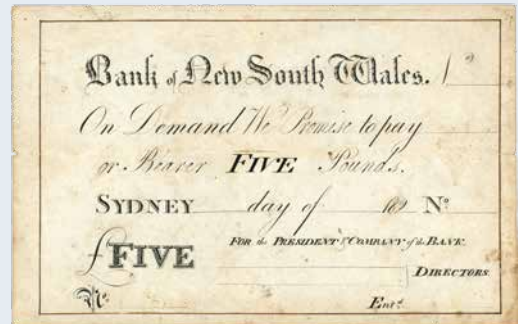 Bank of New South Wales. No
On Demand We Promise to pay
or Bearer FIVE Pounds.
SYDNEY day of 182 No
£FIVE FOR the PRESIDENT & COMPANY of the BANK.
DIRECTORS.
No Entd.